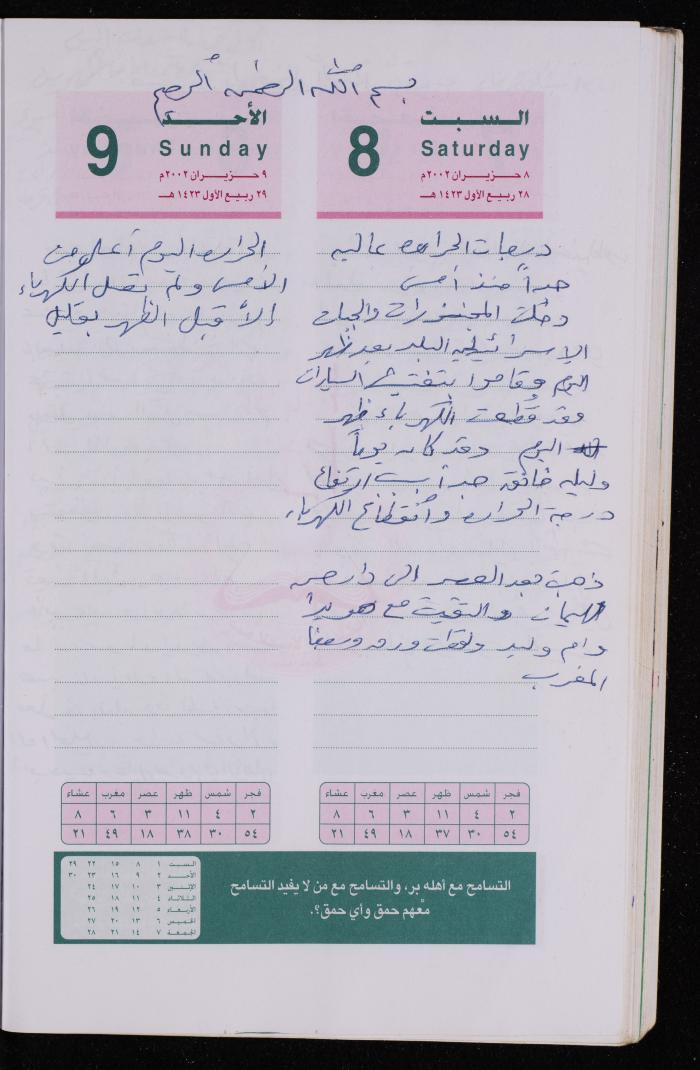 بسم الله الرحمن الرحيم
السبت
8
Saturday
٨ حزيران ٢٠٠٢م
٢٨ ربيع الأول ١٤٢٣ هـ
درجات الحراره عاليه
جداً منذ أمس
دخلت المجنزرات والجيبات
الاسرائيليه البلد بعد ظهر
اليوم وقاموا بتفتيش السيارات
وقد قُطعت الكهرباء ظهر
اليوم وقد كان يوماً
وليله خانقه جداً بسبب ارتفاع
درجة الحراره وانقطاع الكهرباء
ذهبت بعد العصر الى دار
والتقيت مع هويدا
وام وليد
المغرب
فجر شمس ظهر عصر مغرب عشاء
٢ ٤ ١١ ٣ ٦ ٨
٥٤ ٣٠ ٣٧ ١٨ ٤٩ ٢١
الأحد
9
Sunday
٩ حزيران ٢٠٠٢م
٢٩ ربيع الأول ١٤٢٣ هـ
الحراره اليوم أعلى من
الأمس ولم تصل الكهرباء
إلا قبل الظهر بقليل
فجر شمس ظهر عصر مغرب عشاء
٢ ٤ ١١ ٣ ٦ ٨
٥٤ ٣٠ ٣٨ ١٨ ٤٩ ٢١
التسامح مع أهله بر، والتسامح مع من لا يفيد التسامح
معهم حمق وأي حمق؟.
السبت ١ ٨ ١٥ ٢٢ ٢٩
الأحد ٢ ٩ ١٦ ٢٣ ٣٠
الإثنين ٣ ١٠ ١٧ ٢٤
الثلاثاء ٤ ١١ ١٨ ٢٥
الأربعاء ٥ ١٢ ١٩ ٢٦
الخميس ٦ ١٣ ٢٠ ٢٧
الجمعة ٧ ١٤ ٢١ ٢٨